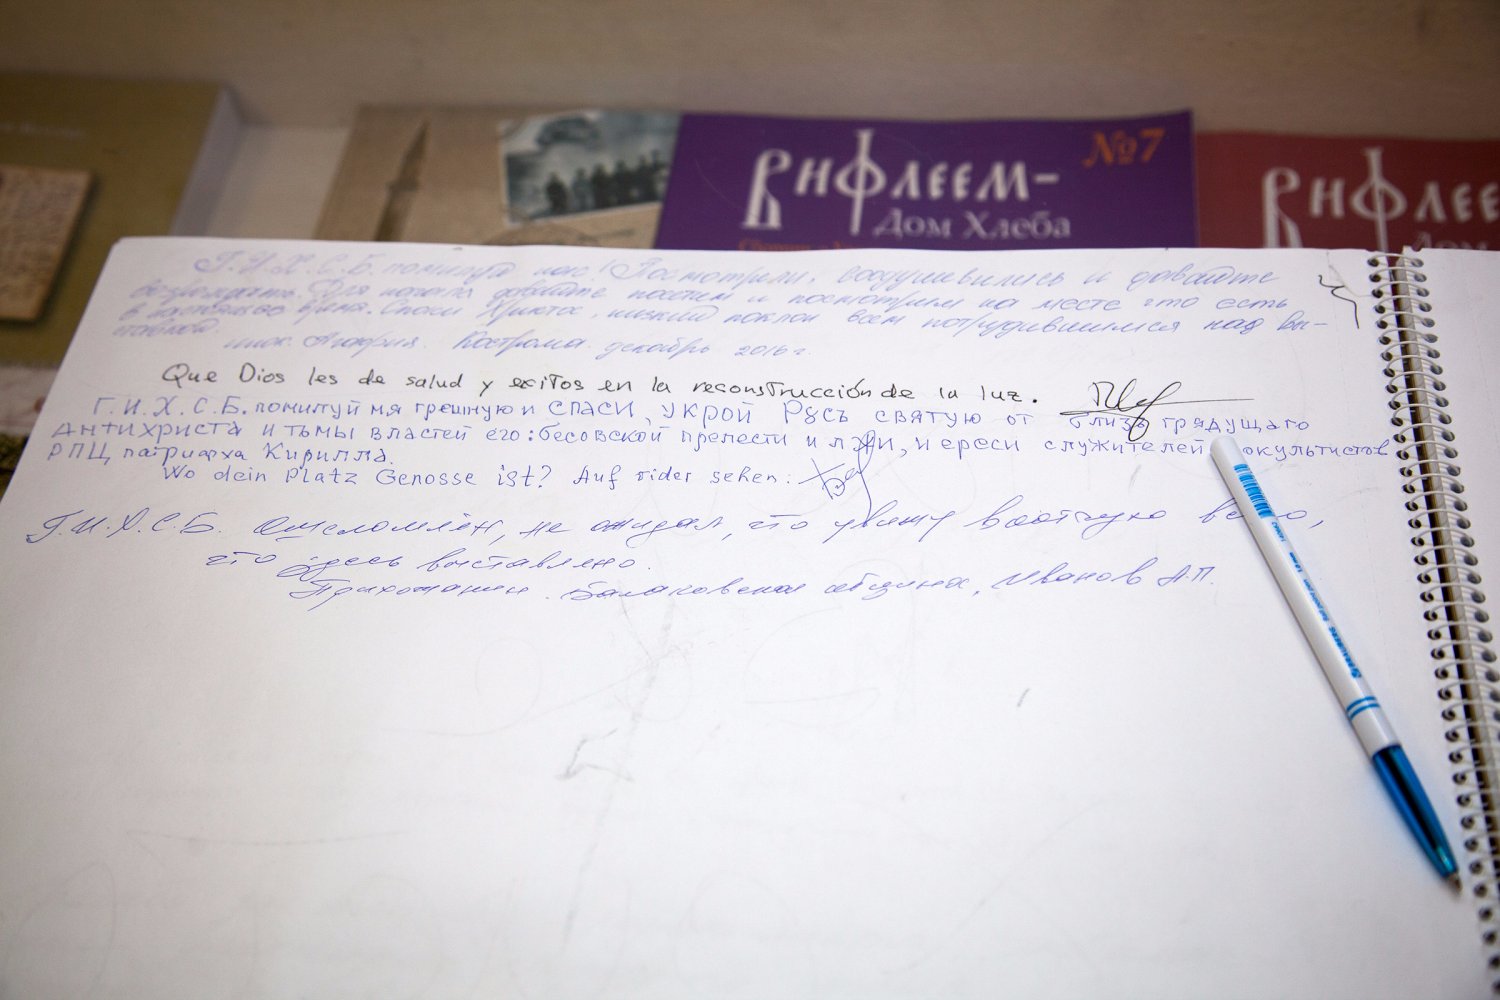 №7
ВИФЛЕЕМ-
Дом Хлеба
ВИФЛЕЕ
Дом
Г.И.Х.С.Б. помилуй нас! Посмотрели, воодушевились и давайте
возрождать. Для начала давайте поедем и посмотрим на месте что есть
в настоящее время. Спаси Христос, низкий поклон всем потрудившимся над вы-
ставкой
инок. Кострома. декабрь 2016 г.
Que Dios les de salud y exitos en la reconstrucción de la luz.
Г.И.Х.С.Б. помилуй мя грешную и СПАСИ, УКРОЙ Русь святую от близь грядущаго
Антихриста и тьмы властей его: бесовской прелести и лжи, и ереси служителей окультистов
РПЦ патриарха Кирилла.
Wo dein Platz Genosse ist? Auf rider sehen:
Г.И.Х.С.Б. Ошеломлён, не ожидал, что увижу воочую
что здесь выставлено.
Прихожанин. Балаковская община, Иванов А.П.